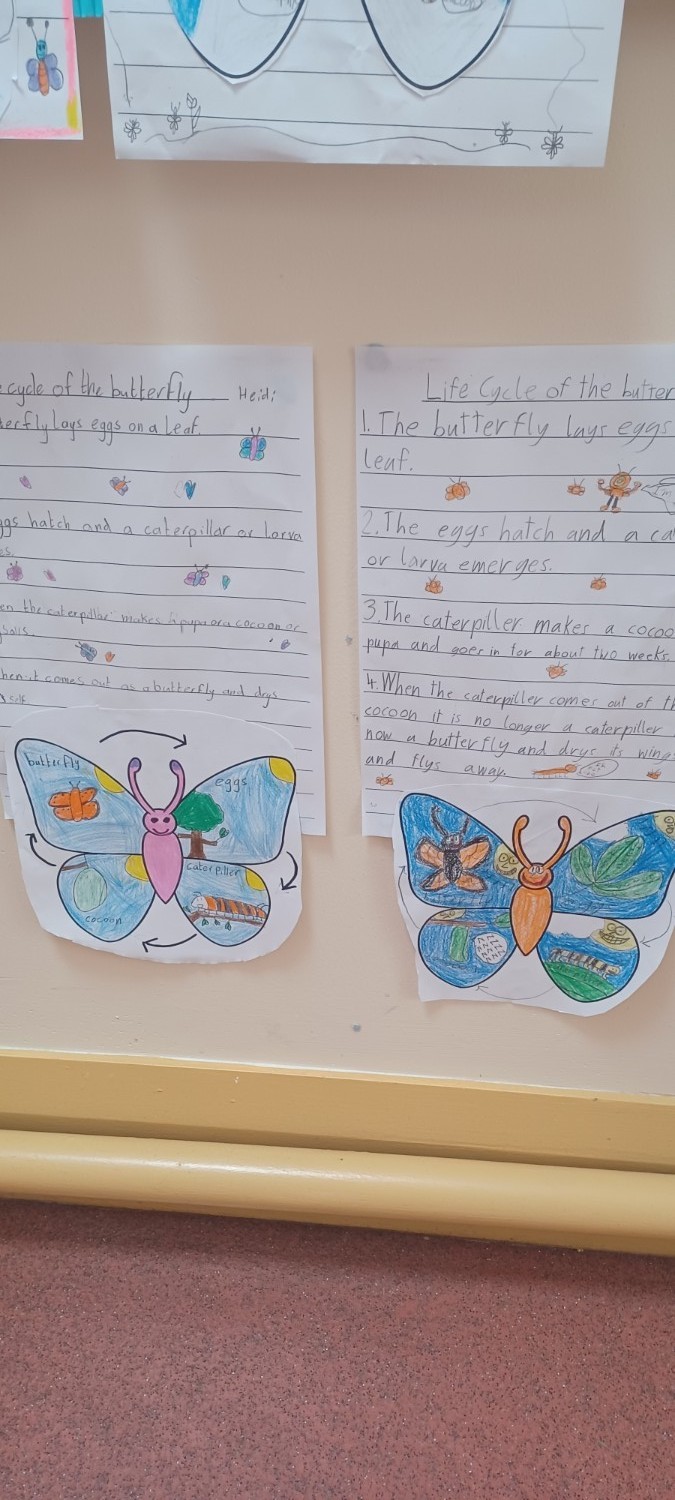 cycle of the butterfly Heidi
lays eggs on a leaf.
hatch and a caterpillar or larva
the caterpillar makes a pupa or a cocoon or
it comes out as a butterfly and drys
self
butterfly
eggs
cocoon
caterpiller
Life Cycle of the butter
1. The butterfly lays eggs
leaf.
2. The eggs hatch and a ca
or larva emerges.
3. The caterpiller makes a cocoo
pupa and goes in for about two weeks.
4. When the caterpiller comes out of th
cocoon it is no longer a caterpiller
now a butterfly and drys its wing
and flys away.